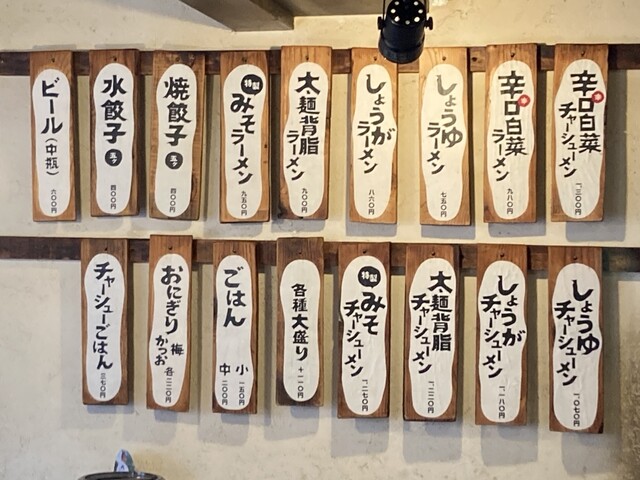 辛口白菜
チャーシューメン
一、三〇〇円
辛口白菜
ラーメン
九八〇円
しょうゆ
ラーメン
七五〇円
しょうが
ラーメン
八六〇円
太麺背脂
ラーメン
九〇〇円
特製
みそ
ラーメン
九五〇円
焼餃子
五ヶ
四〇〇円
水餃子
五ヶ
四〇〇円
ビール(中瓶)
六〇〇円
しょうゆ
チャーシューメン
一、〇七〇円
しょうが
チャーシューメン
一、一八〇円
太麺背脂
チャーシューメン
一、二二〇円
特製
みそ
チャーシューメン
一、二七〇円
各種大盛り
+一一〇円
ごはん
小 一五〇円
中 二〇〇円
おにぎり
梅
かつお
各二二〇円
チャーシューごはん
三七〇円